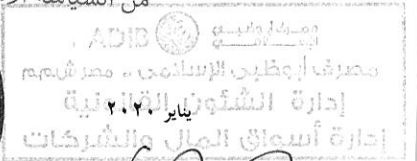 من السياسة الا
ADIB
مصرف أبوظبي الإسلامي - مصر ش.م.م
إدارة الشئون القانونية
يناير ٢٠٢٠
إدارة أسواق المال والشركات